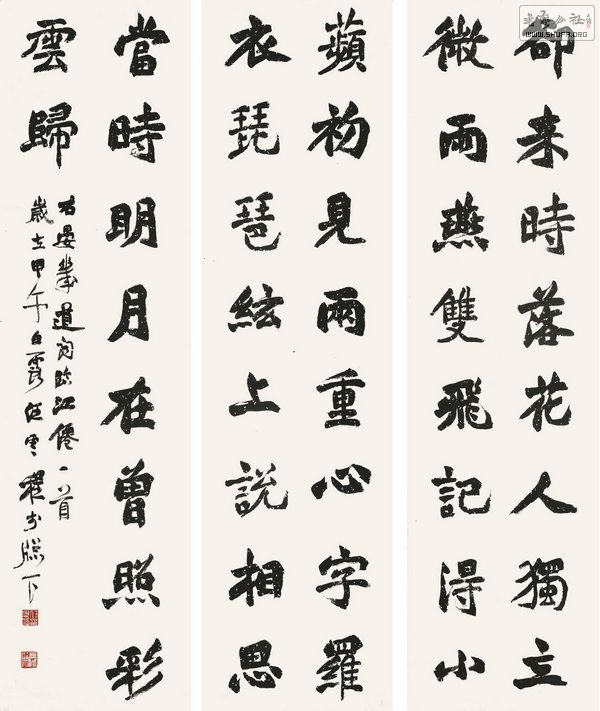 卻来時落花人獨立
微雨燕雙飛記得小
蘋初見兩重心字羅
衣琵琶絃上說相思
當時明月在曾照彩
雲歸
右晏幾道詞臨江僊一首
歲在甲午白露
书法公社
WWW.SHUFA.ORG